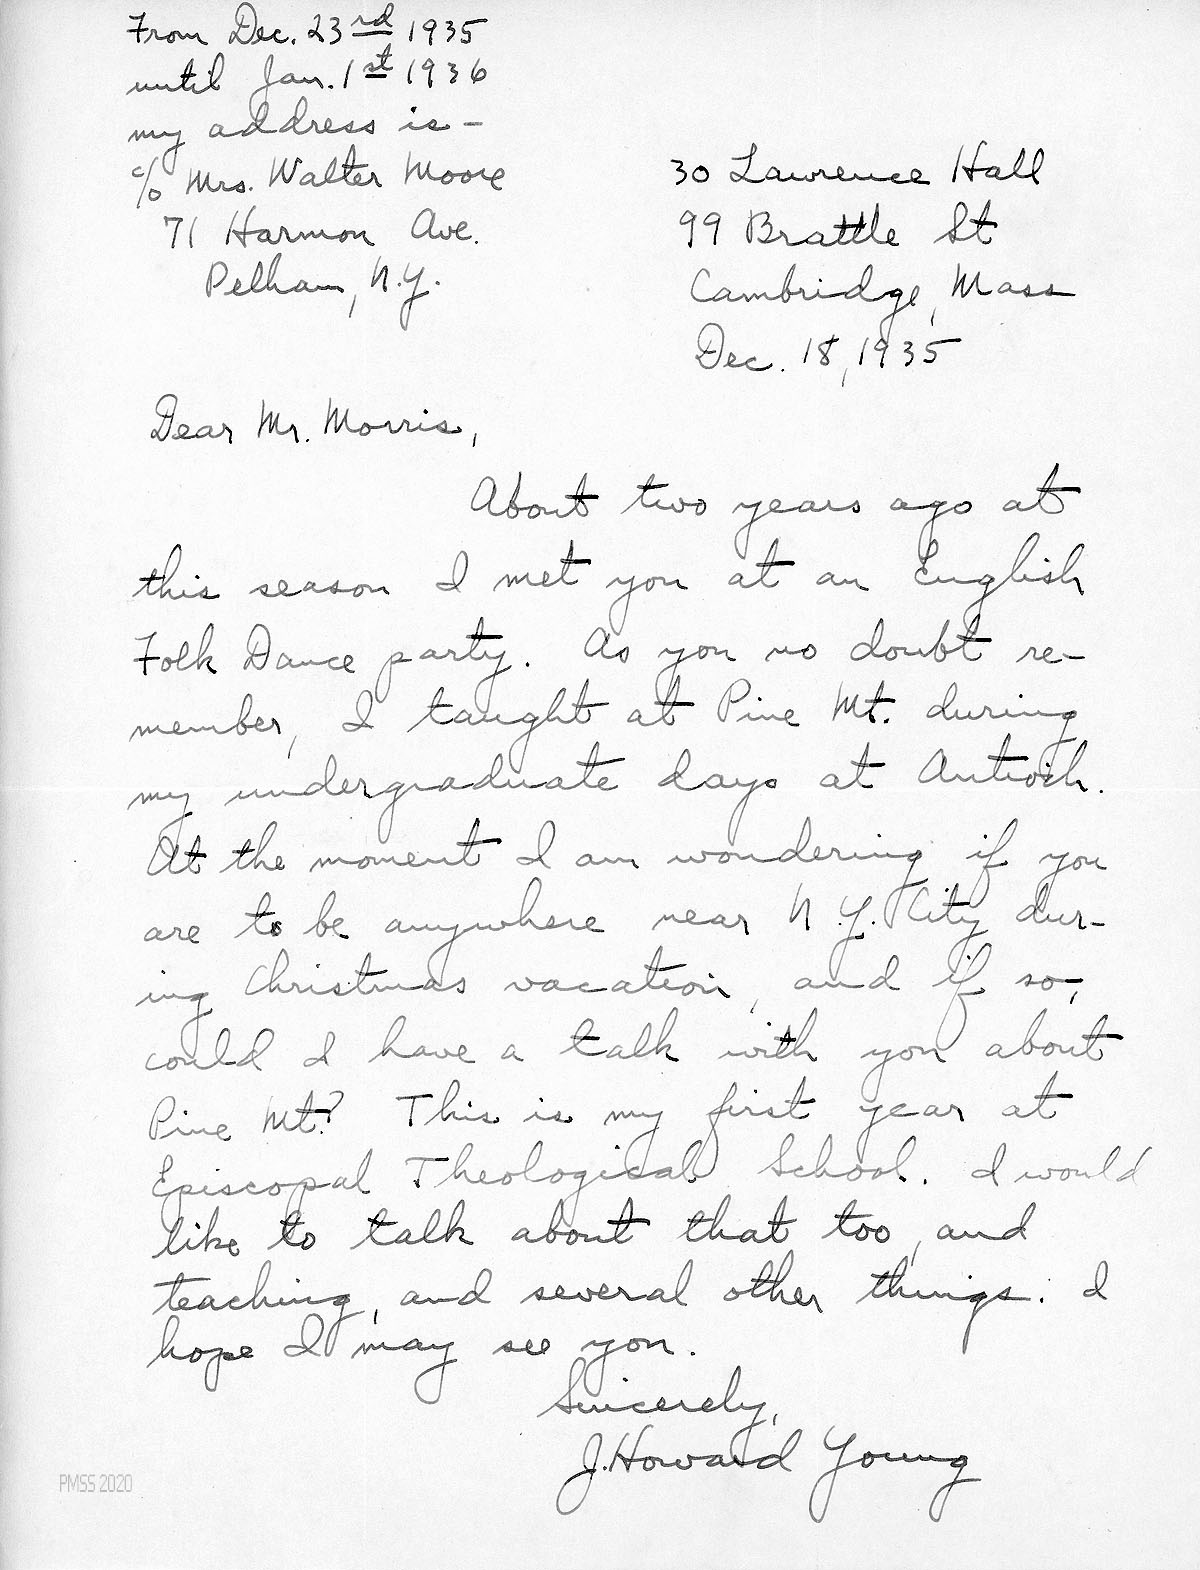 From Dec. 23rd 1935
until Jan. 1st 1936
my address is –
c/o Mrs. Walter Moore
71 Harmon Ave.
Pelham, N.Y.
30 Lawrence Hall
99 Brattle St
Cambridge, Mass
Dec. 18, 1935
Dear Mr. Morris,
About two years ago at
this season I met you at an English
Folk Dance party. As you no doubt re-
member, I taught at Pine Mt. during
my undergraduate days at Antioch.
At the moment I am wondering if you
are to be anywhere near N.Y. City dur-
ing Christmas vacation, and if so,
could I have a talk with you about
Pine Mt? This is my first year at
Episcopal Theological School. I would
like to talk about that too, and
teaching, and several other things. I
hope I may see you.
Sincerely,
J. Howard Young
PMSS 2020